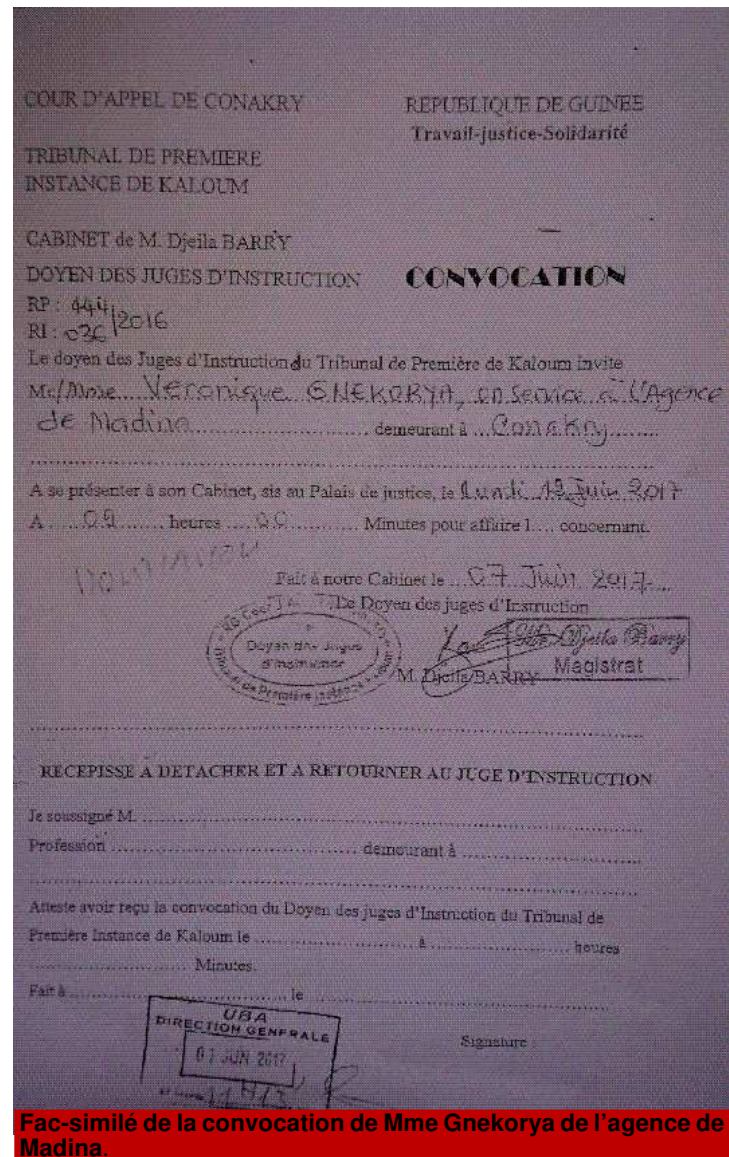 COUR D'APPEL DE CONAKRY
REPUBLIQUE DE GUINEE
Travail-justice-Solidarité
TRIBUNAL DE PREMIERE
INSTANCE DE KALOUM
CABINET de M. Djeila BARRY
DOYEN DES JUGES D'INSTRUCTION
CONVOCATION
RP : 444
RI : 036/2016
Le doyen des Juges d'Instruction du Tribunal de Première de Kaloum invite
Mr/Mme.... Veronique GNEKORYA, en service à l'Agence
de Madina.................... demeurant à ... Conakry.........
A se présenter à son Cabinet, sis au Palais de justice, le Lundi 12 Juin 2017
A ..... 09 ....... heures .... 00 ........... Minutes pour affaire 1.... concernant.
Fait à notre Cabinet le ... 07 Juin 2017
Le Doyen des juges d'Instruction
Doyen des Juges
d'Instruction
Tribunal de Première Instance
Djeila Barry
Magistrat
M. Djeila BARRY
RECEPISSE A DETACHER ET A RETOURNER AU JUGE D'INSTRUCTION
Je soussigné M. ......................................................
Profession .................................... demeurant à ..........................
Atteste avoir reçu la convocation du Doyen des juges d'Instruction du Tribunal de
Première Instance de Kaloum le ........................ à ...................... heures
........................ Minutes.
Fait à ................................ le ..............................................
UBA
DIRECTION GENERALE
07 JUN 2017
11H13
Signature :
Fac-similé de la convocation de Mme Gnekorya de l'agence de
Madina.